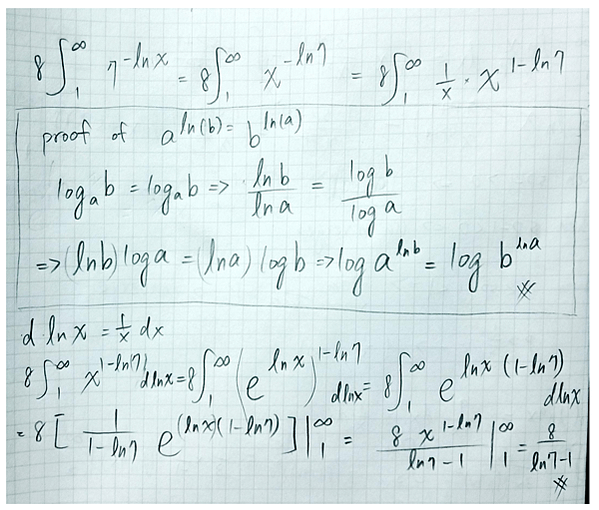 8∫₁^∞ 7^(-ln x) = 8∫₁^∞ x^(-ln 7) = 8∫₁^∞ 1/x · x^(1-ln 7)
proof of a^(ln(b)) = b^(ln(a))
log_a b = log_a b => ln b / ln a = log b / log a
=> (ln b) log a = (ln a) log b => log a^(ln b) = log b^(ln a) ※
d ln x = 1/x dx
8∫₁^∞ x^(1-ln 7) d ln x = 8∫₁^∞ (e^(ln x))^(1-ln 7) d ln x = 8∫₁^∞ e^(ln x (1-ln 7)) d ln x
= 8 [ 1/(1-ln 7) e^((ln x)(1-ln 7)) ] |₁^∞ = 8 x^(1-ln 7) / (ln 7 - 1) |₁^∞ = 8/(ln 7-1) ※